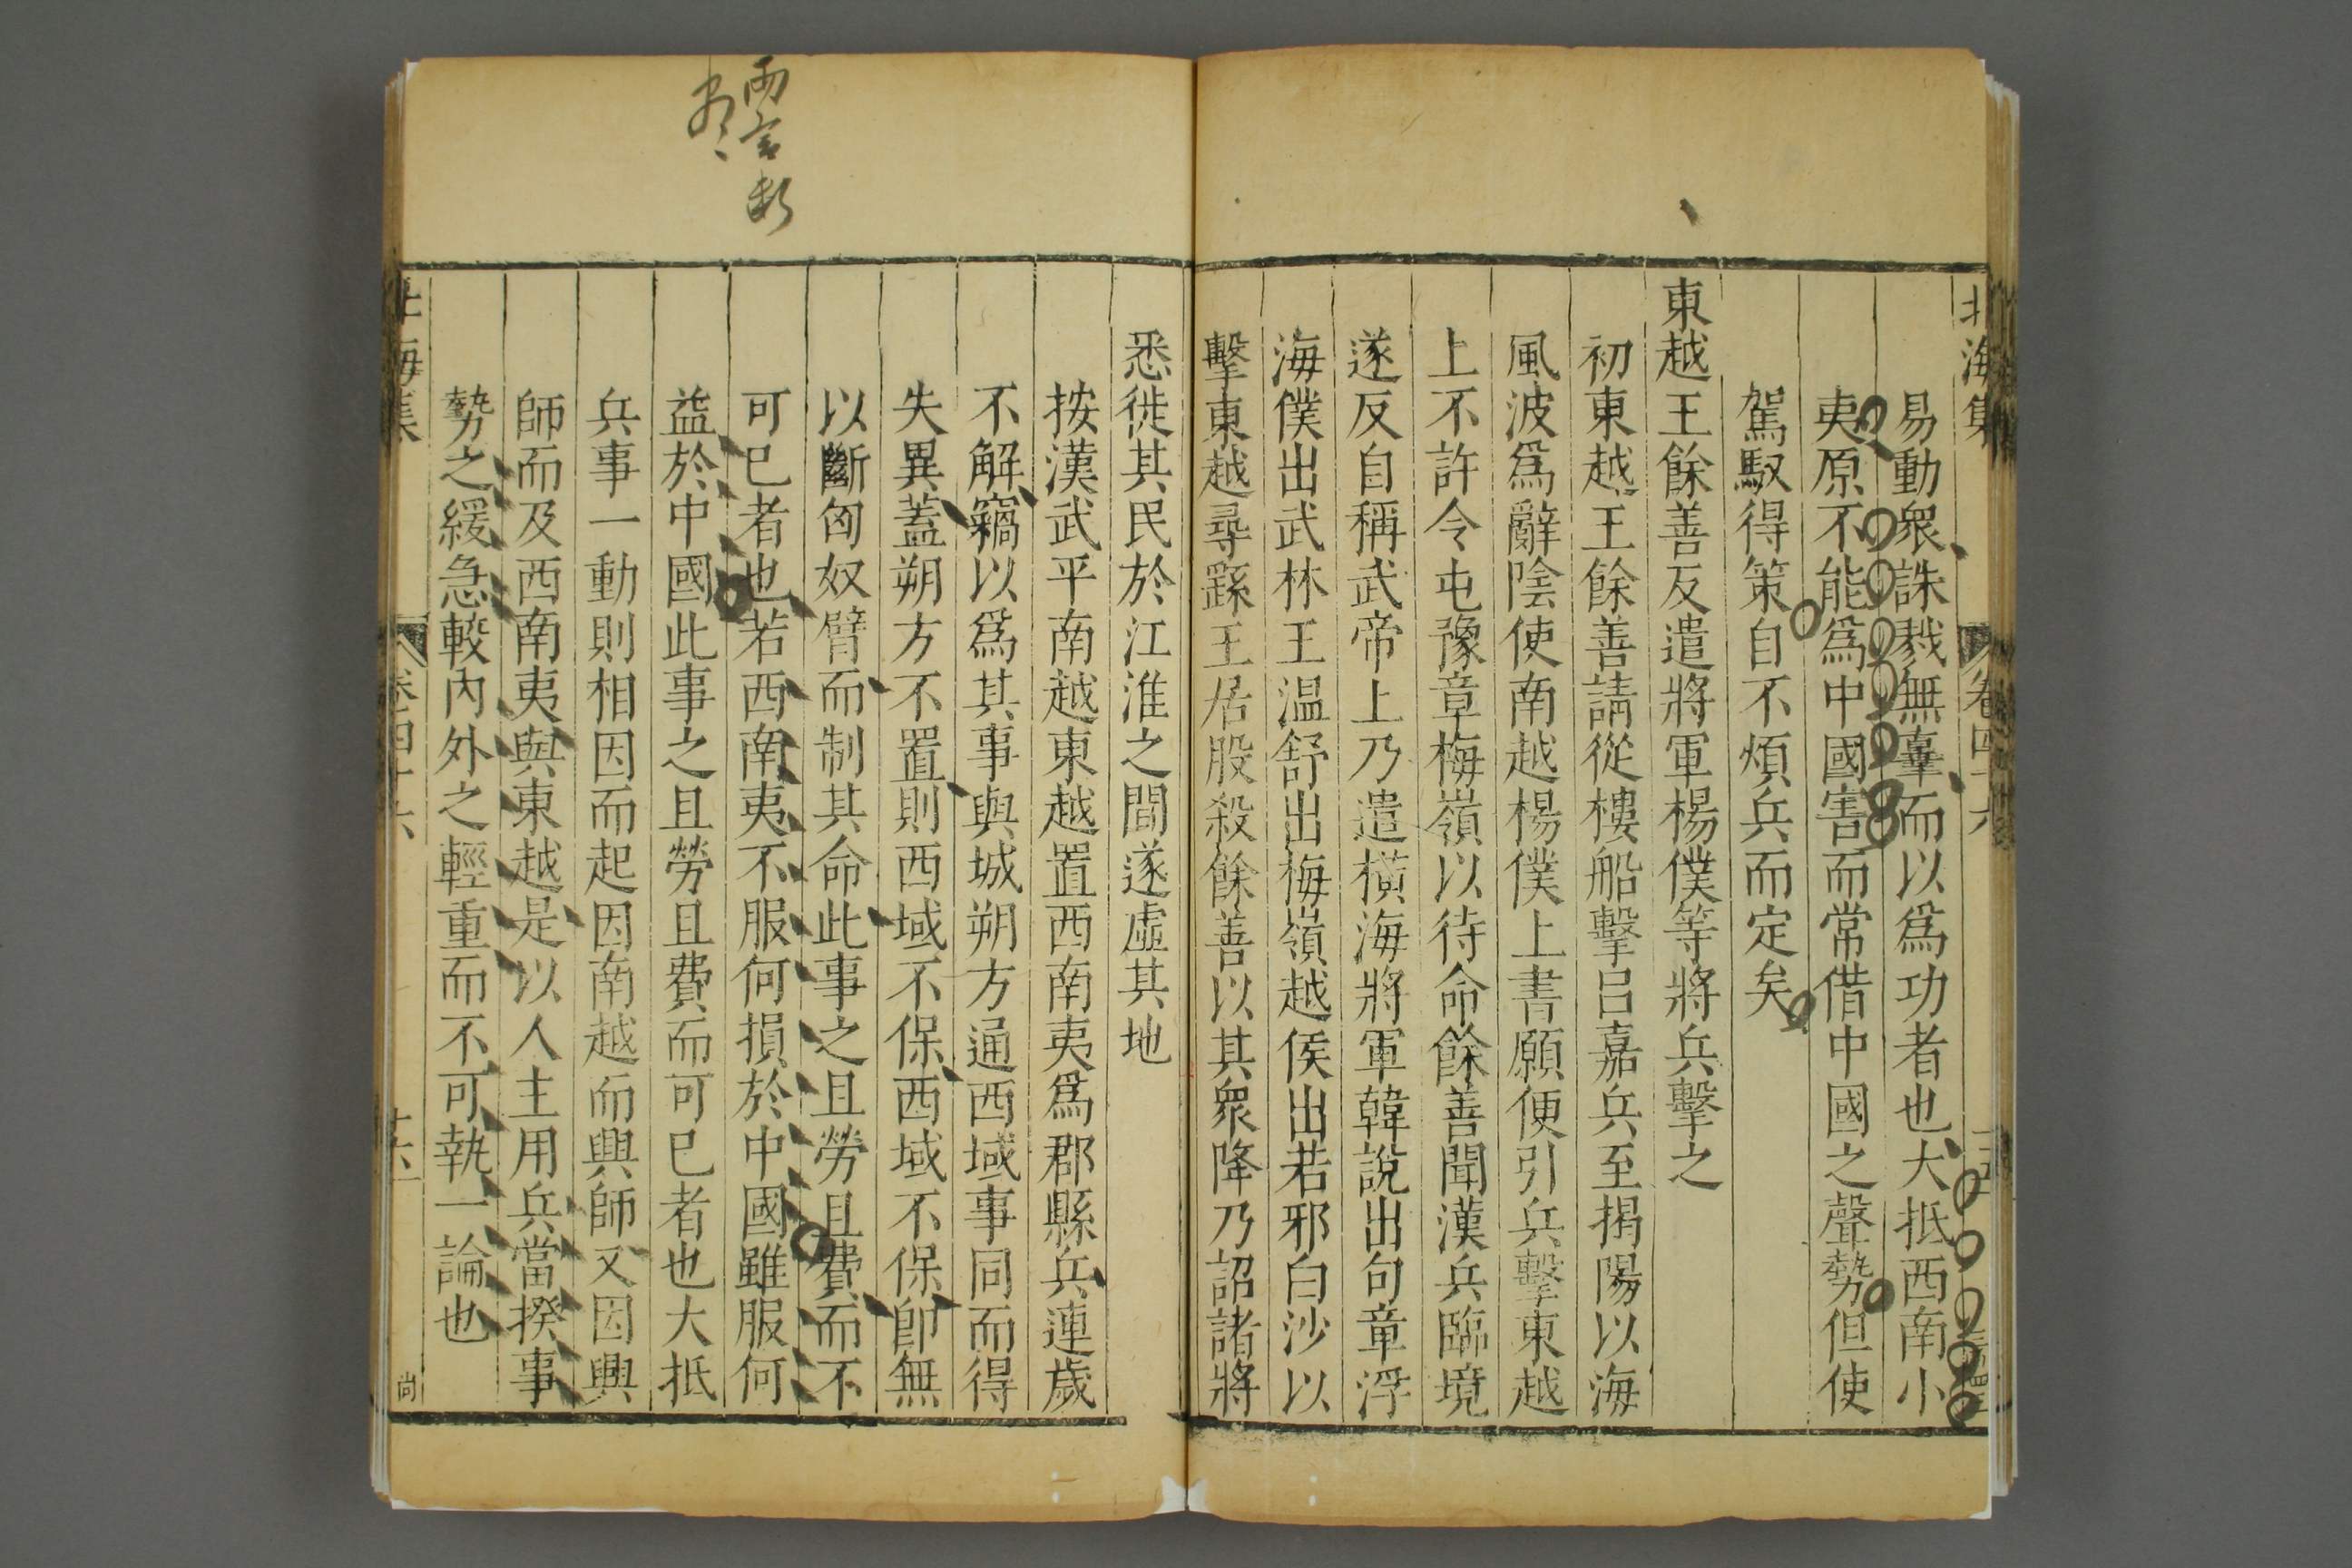 北海集
卷四十六
十五
易動衆誅戮無辜而以爲功者也大抵西南小
夷原不能爲中國害而常借中國之聲勢但使
駕馭得策自不煩兵而定矣
東越王餘善反遣將軍楊僕等將兵擊之
初東越王餘善請從樓船擊呂嘉兵至揭陽以海
風波爲辭陰使南越楊僕上書願便引兵擊東越
上不許令屯豫章梅嶺以待命餘善聞漢兵臨境
遂反自稱武帝上乃遣橫海將軍韓說出句章浮
海僕出武林王温舒出梅嶺越侯出若邪白沙以
擊東越尋繇王居股殺餘善以其衆降乃詔諸將
悉徙其民於江淮之間遂虛其地
按漢武平南越東越置西南夷爲郡縣兵連歲
不解竊以爲其事與城朔方通西域事同而得
失異蓋朔方不置則西域不保西域不保卽無
以斷匈奴臂而制其命此事之且勞且費而不
可已者也若西南夷不服何損於中國雖服何
益於中國此事之且勞且費而可已者也大抵
兵事一動則相因而起因南越而興師又因興
師而及西南夷與東越是以人主用兵當揆事
勢之緩急較內外之輕重而不可執一論也
兩言斷
北海集
卷四十六
十六
尚